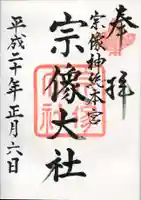 奉拝
宗像神社本宮
宗像大社
平成二十年正月六日